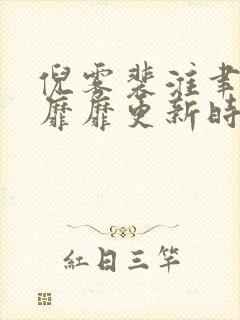 倪雾裴淮聿
靡靡更新時
紅日三竿